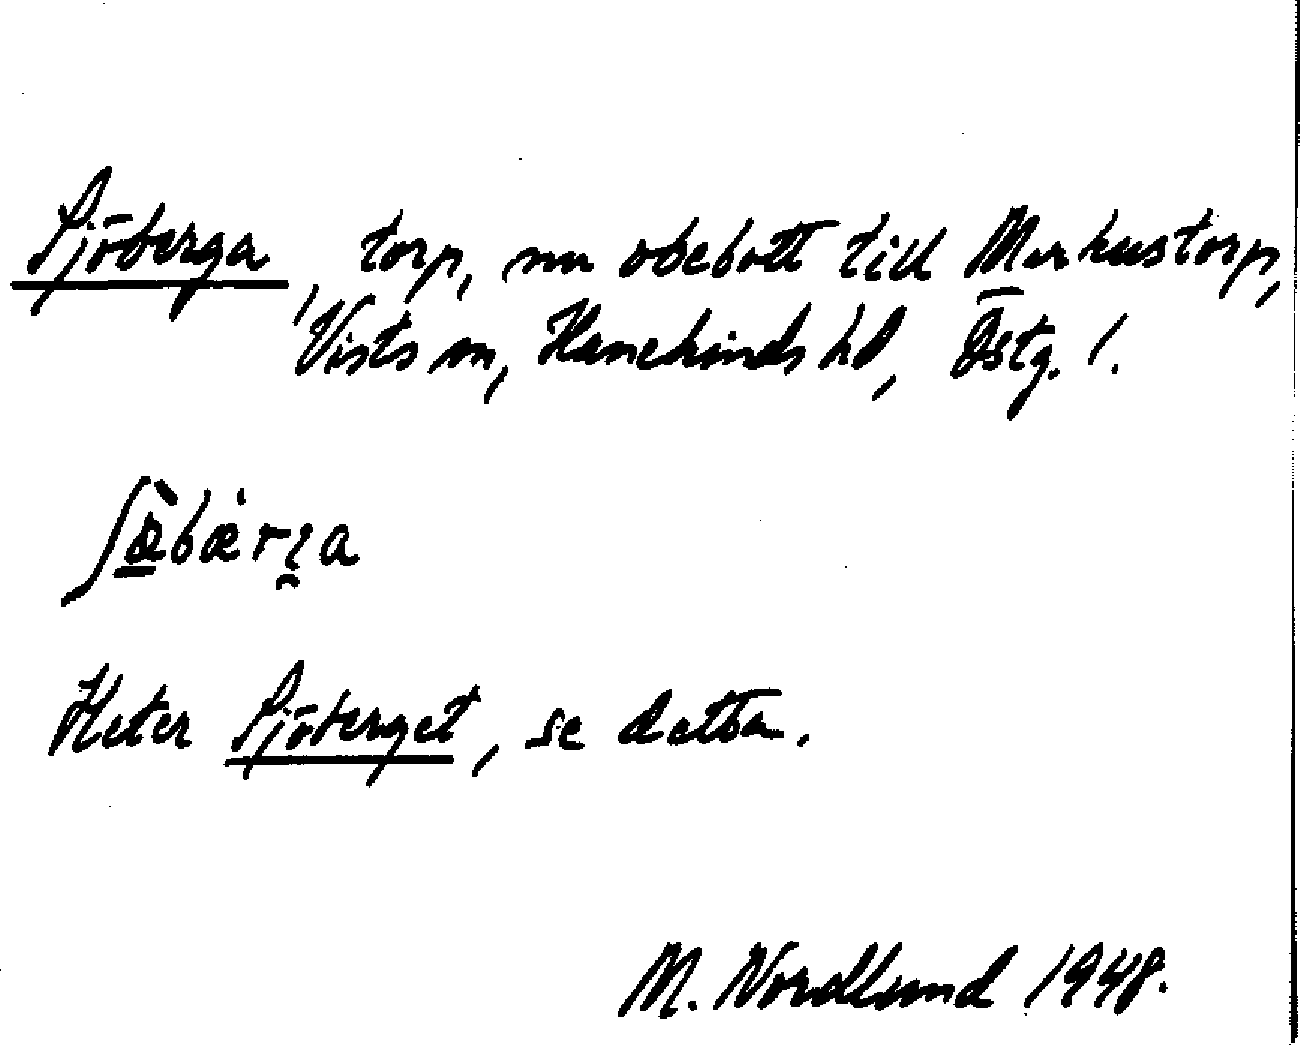 Sjöberga, torp, nu obebott till Markustorp,
Vists sn, Hanekinds hd, Östg. l.
Heter Sjöberget, se detta.
M. Nordlund 1948.